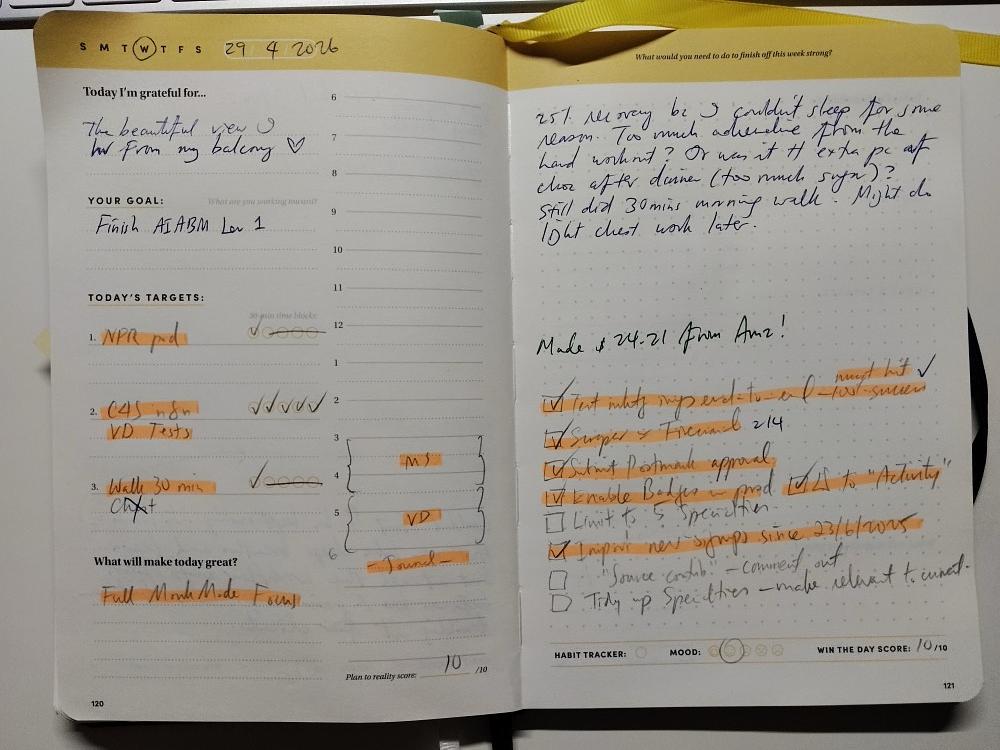 S M T W T F S 29 4 2026
Today I'm grateful for...
The beautiful view
from my balcony ♡
YOUR GOAL: What are you working toward?
Finish AIABM Lev 1
TODAY'S TARGETS:
30-min time blocks:
1. NPR prd
2. C45 n8n
VD Tests
3. Walk 30 min
What will make today great?
Full Monk Mode Focus
120
6
7
8
9
10
11
12
1
2
3
4
MS
5
VD
6
Plan to reality score: 10 /10
What would you need to do to finish off this week strong?
25% recovery bc I couldn't sleep for some
reason. Too much adrenaline from the
hard workout? Or was it extra pc of
choc after dinner (too much sugar)?
Still did 30mins morning walk. Might do
light chest work later.
Made $24.21 from Amz!
must hit ✓
Test end-to-end success
Scraper 214
Submit Postmark approval
Enable Badges in prod to "Activity"
Limit to 5 Specialties
Import new signups since 23/6/2025
"Source contrib" - comment out
Tidy up Specialties - make relevant to current.
HABIT TRACKER: MOOD: WIN THE DAY SCORE: 10/10
121